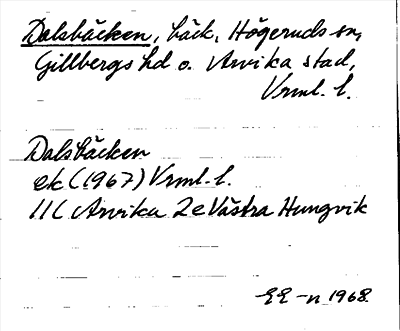 Dalsbäcken, bäck, Högeruds sn,
Gillbergs hd o. Arvika stad,
Vrml. l.
Dalsbäcken
ek (1967) Vrml. l.
11C Arvika 2e Västra Hungvik
EE-n 1968.